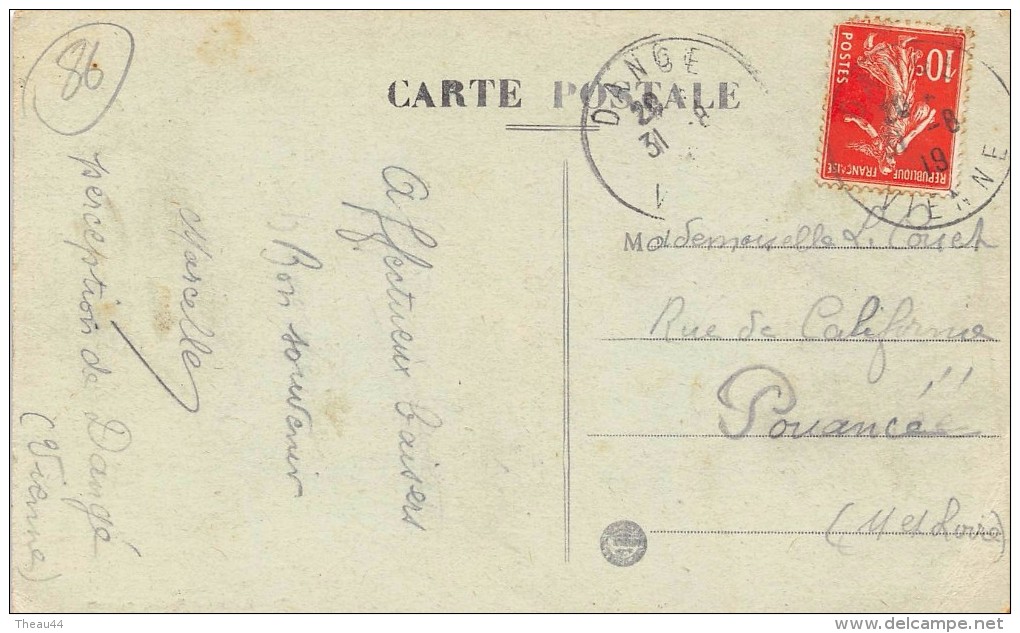 86
CARTE POSTALE
DANGE
20
31 - 8
10c
POSTES
REPUBLIQUE
FRANÇAISE
- 8
19
VIENNE
Affectueux baisers
Bon souvenir
Marcelle
perception de Dangé
(Vienne)
Mademoiselle L. Couet
Rue de Californie
Pouancé
(M et Loire)
Theau44
www.delcampe.net